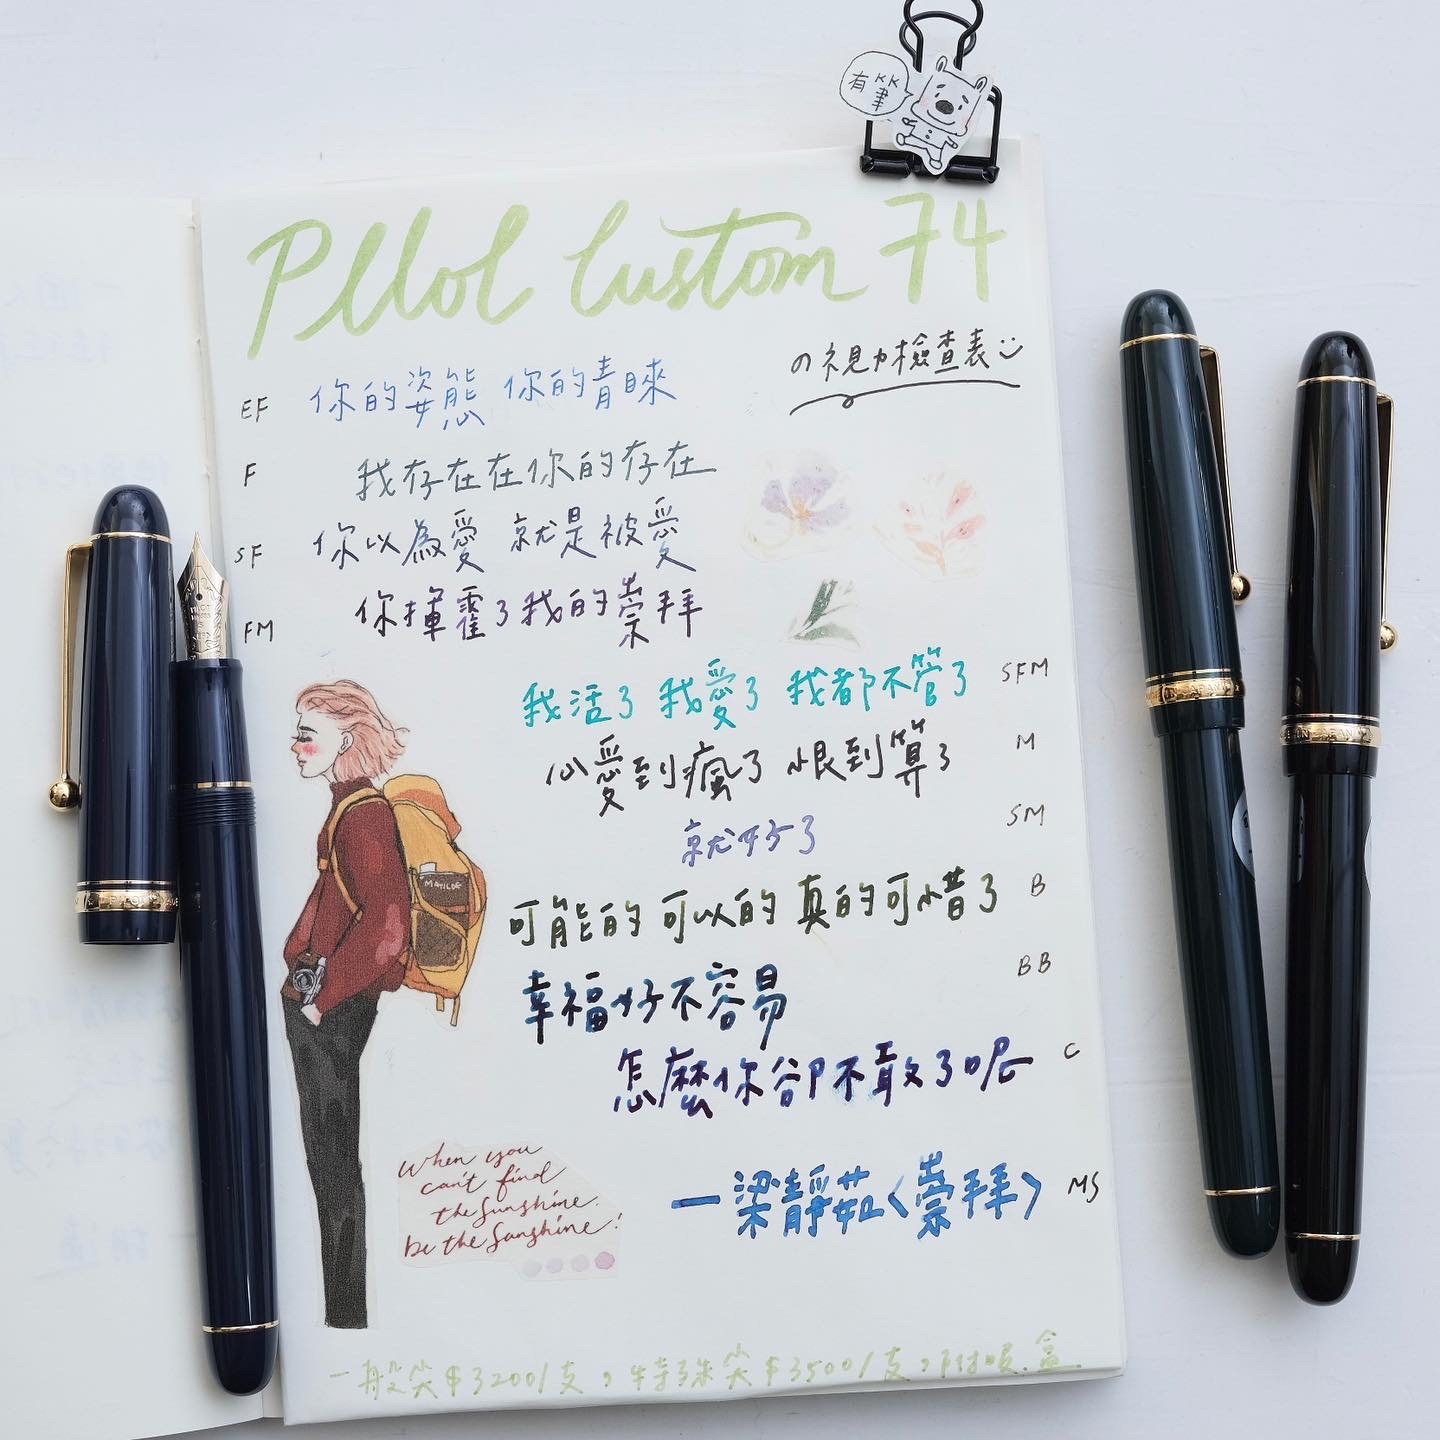 有筆
PILOT Custom 74
の視力檢查表
EF 你的姿態 你的青睞
F 我存在在你的存在
SF 你以為愛 就是被愛
FM 你揮霍了我的崇拜
我活了 我愛了 我都不管了 SFM
心愛到瘋了 恨到算了 M
就好了 SM
可能的 可以的 真的可惜了 B
幸福好不容易 BB
怎麼你卻不敢了呢 C
—梁靜茹〈崇拜〉 MS
MATILDE
When you
can't find
the sunshine.
be the sunshine!
一般尖$3200/支,特殊尖$3500/支,附吸.盒.